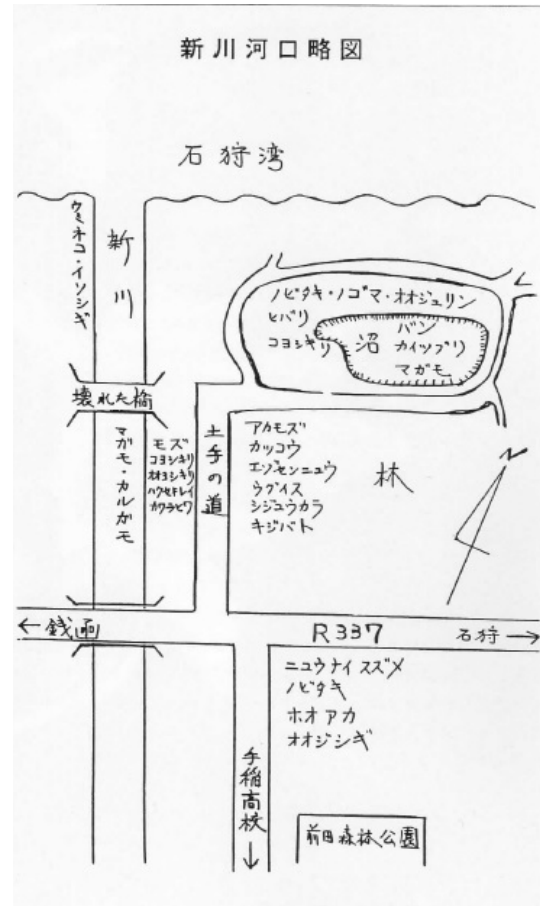 新川河口略図
石狩湾
ウミネコ・イソシギ
新川
ノビタキ・ノゴマ・オオジュリン
ヒバリ
コヨシキリ
沼
バン
カイツブリ
マガモ
壊れた橋
マガモ・カルガモ
モズ
コヨシキリ
オオヨシキリ
ハクセキレイ
カワラヒワ
土手の道
アカモズ
カッコウ
エゾセンニュウ
ウグイス
シジュウカラ
キジバト
林
N
←銭函
R337
石狩→
ニュウナイスズメ
ノビタキ
ホオアカ
オオジシギ
手稲高校
↓
前田森林公園